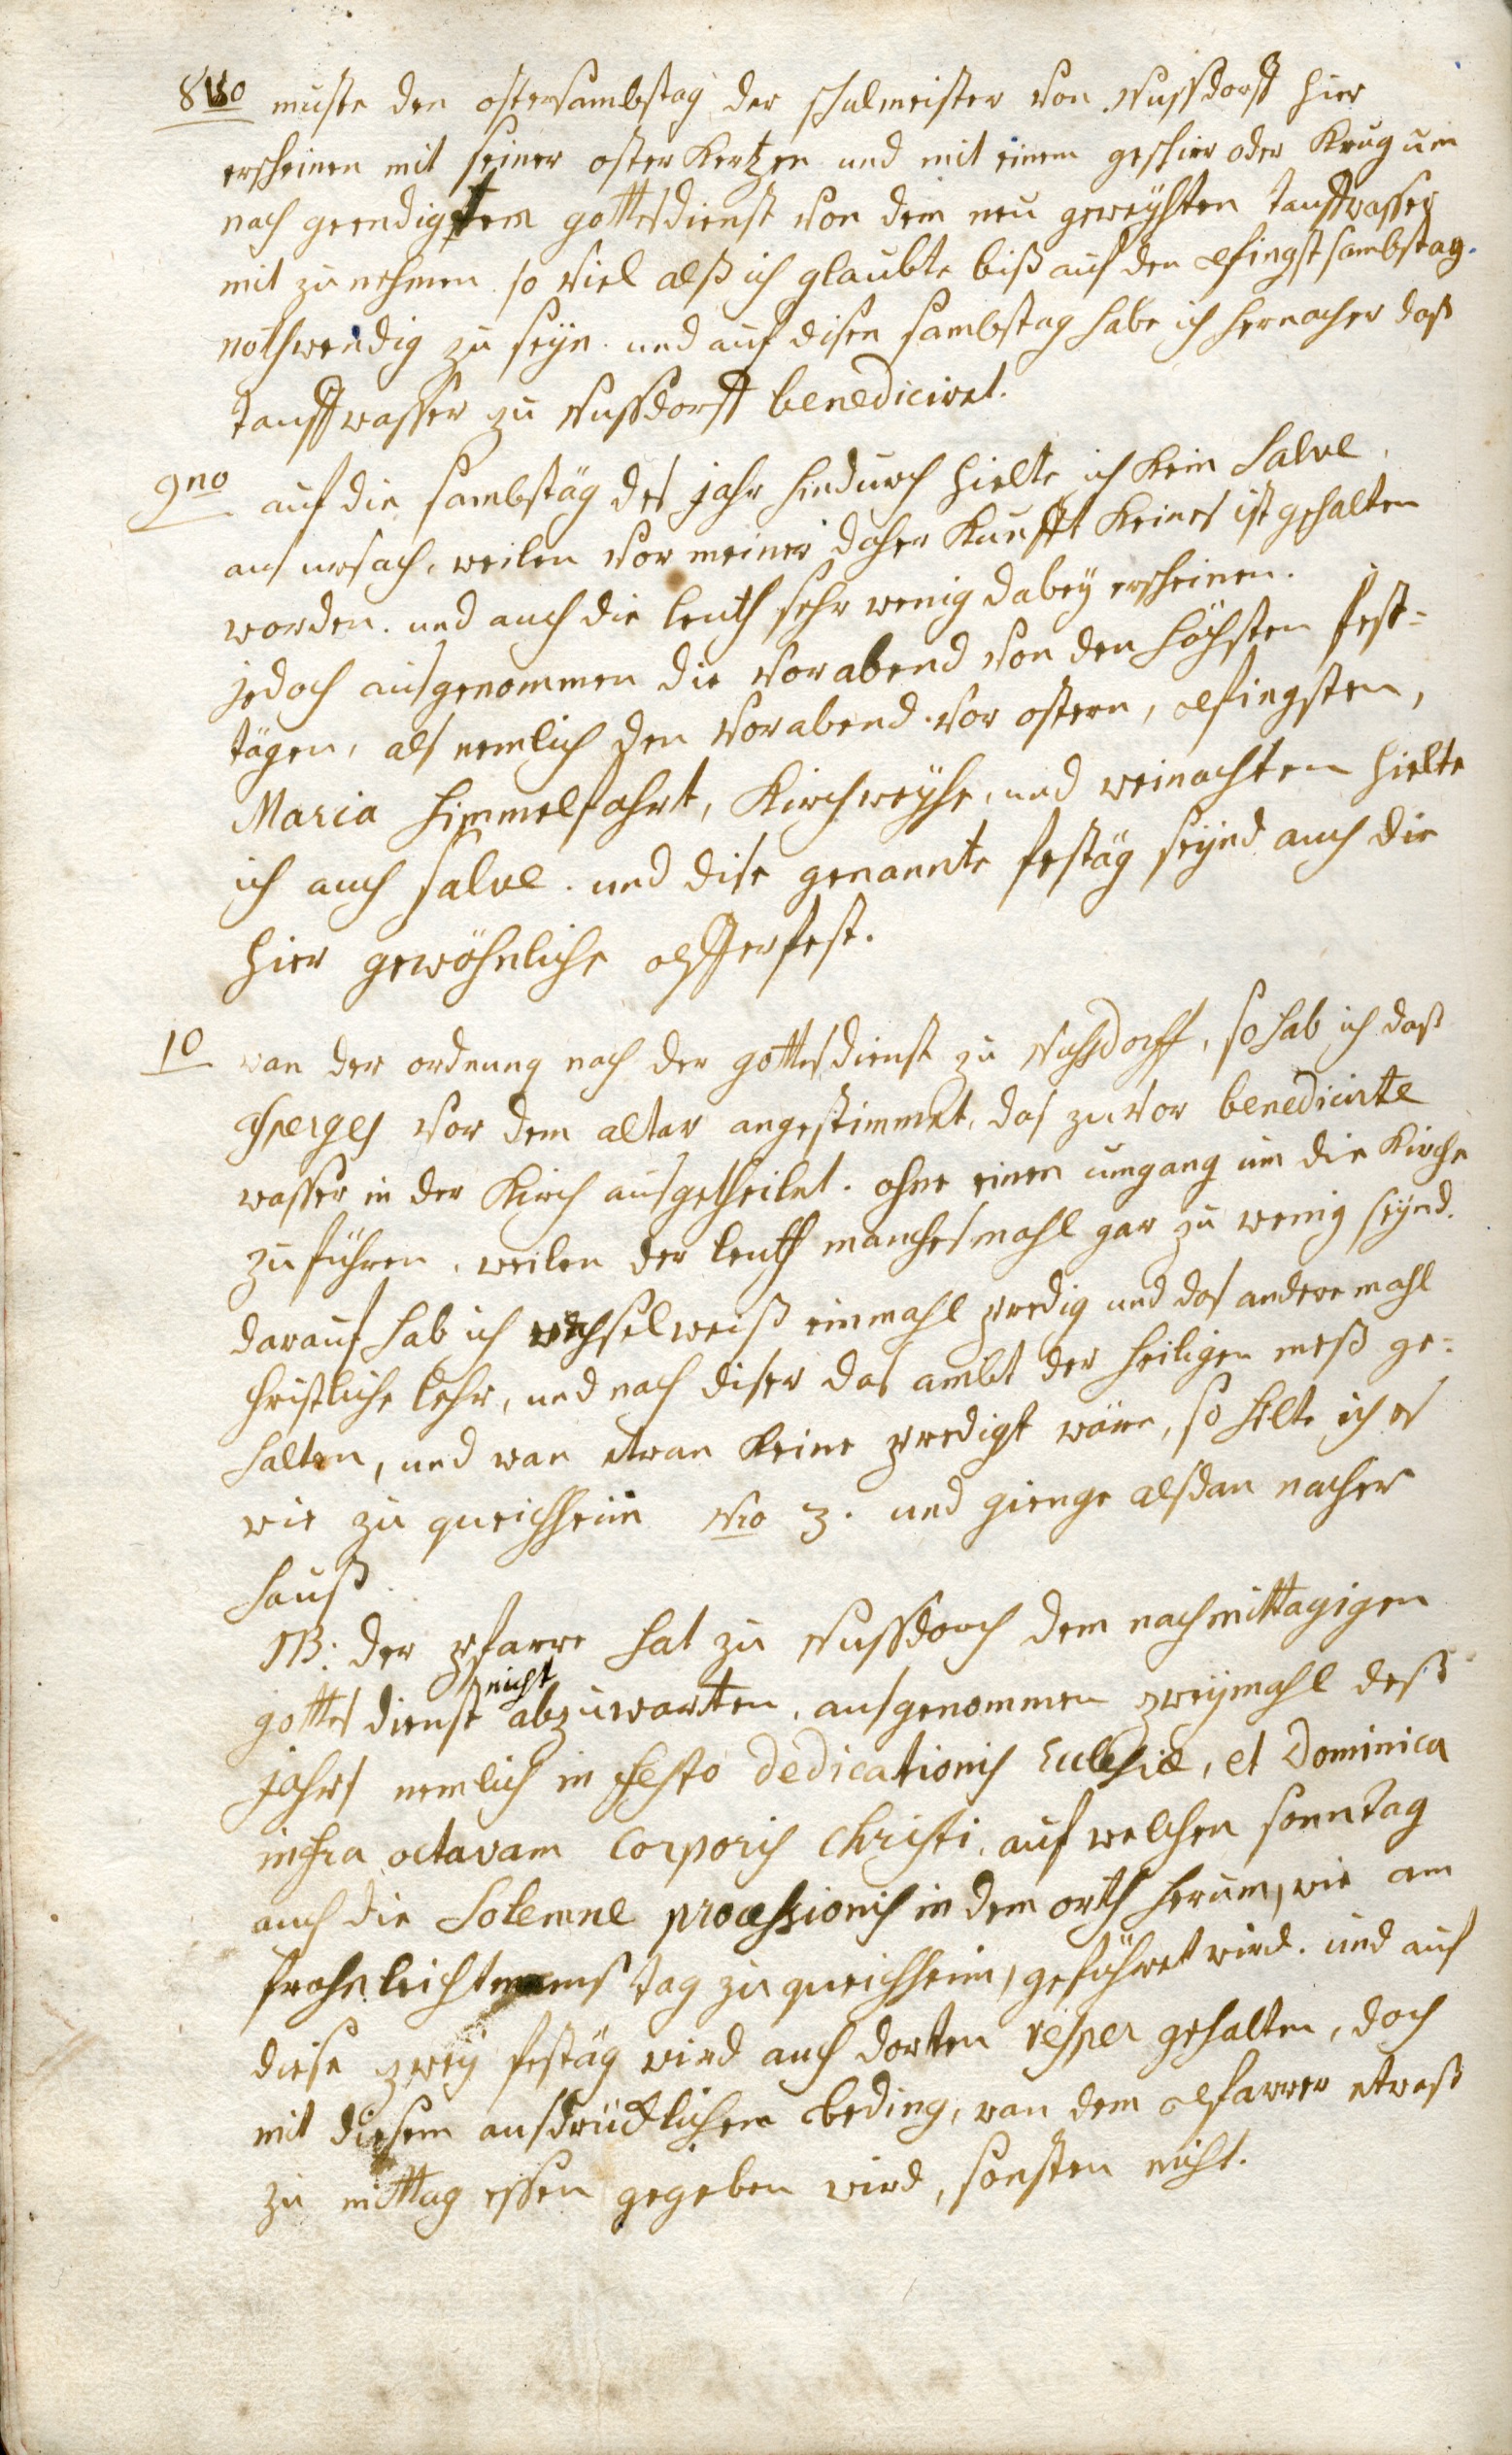 8vo muste den ostersambstag der schulmeister von Nussdorff hier
erscheinen mit seiner oster Kertzen und mit einem geschier oder Krug um
nach geendigtem gottesdienst von dem neu geweyhten tauffwasser
mit zu nehmen so viel alß ich glaubte biß auf den Pfingstsambstag
nothwendig zu seyn. und auf disen sambstag habe ich hernacher daß
tauffwasser zu Nussdorff benediciret.
9no auf die sambstäg des jahr hindurch hielte ich Kein Salve.
aus ursach, weilen vor meiner daher Kunfft Keines ist gehalten
worden. und auch die leuth sehr wenig dabey erscheinen.
jedoch ausgenommen die Vorabend von den höchsten fest-
tägen, als nemlich den Vorabend vor ostern, Pfingsten,
Maria Himmelfahrt, Kirchweyhe, und weinachten hielte
ich auch Salve. und dise genannte festäg seynd auch die
hier gewöhnliche opfferfest.
10 wan der ordnung nach der gottesdienst zu Nussdorff, so hab ich daß
Asperges vor dem altar angestimmet, das zuvor benedicirte
wasser in der Kirch ausgetheilet. ohne einen umgang um die Kirche
zu führen, weilen der leuth manchesmahl gar zu wenig seynd.
darauf hab ich wechselweiß einmahl predig und das andere mahl
christliche lehr, und nach diser das ambt der heiligen meß ge-
halten, und wan etwan Keine predigt wäre, so hilte ich es
wie zu queichheim Nro 3. und gienge alßdan nacher
Hauß.
NB: der pfarre hat zu Nussdorf dem nachmittagigen
gottesdienst nicht abzuwarten, ausgenommen zweymahl deß
jahrs nemlich in festo dedicationis Ecclesiæ, et Dominica
infra octavam Corporis Christi, auf welchen sonntag
auch die Solemne processionis in dem orth herum, wie am
frohnleichtnams tag zu queichheim, geführet wird. und auf
diese zwey festäg wird auch dorten vesper gehalten, doch
mit diesem ausdrücklichen beding, wan dem Pfarrer etwaß
zu mittag essen gegeben wird, sonsten nicht.